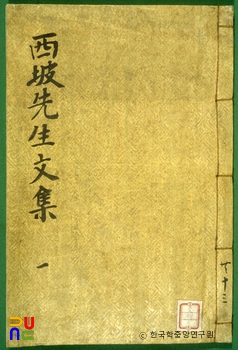 西坡先生文集
一
共十三
ⓒ 한국학중앙연구원